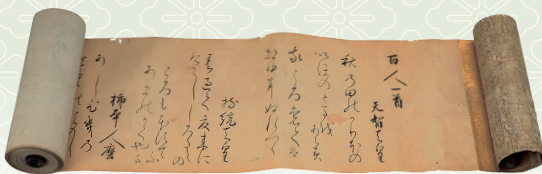 百人一首
天智天皇
秋乃田のかりほの
いほのとまをあらみ
我ころも
露にぬれつつ
持統天皇
春過て夏来に
けらししろ の
ころもほすてふ
あまのかくや
柿本人麿
あし